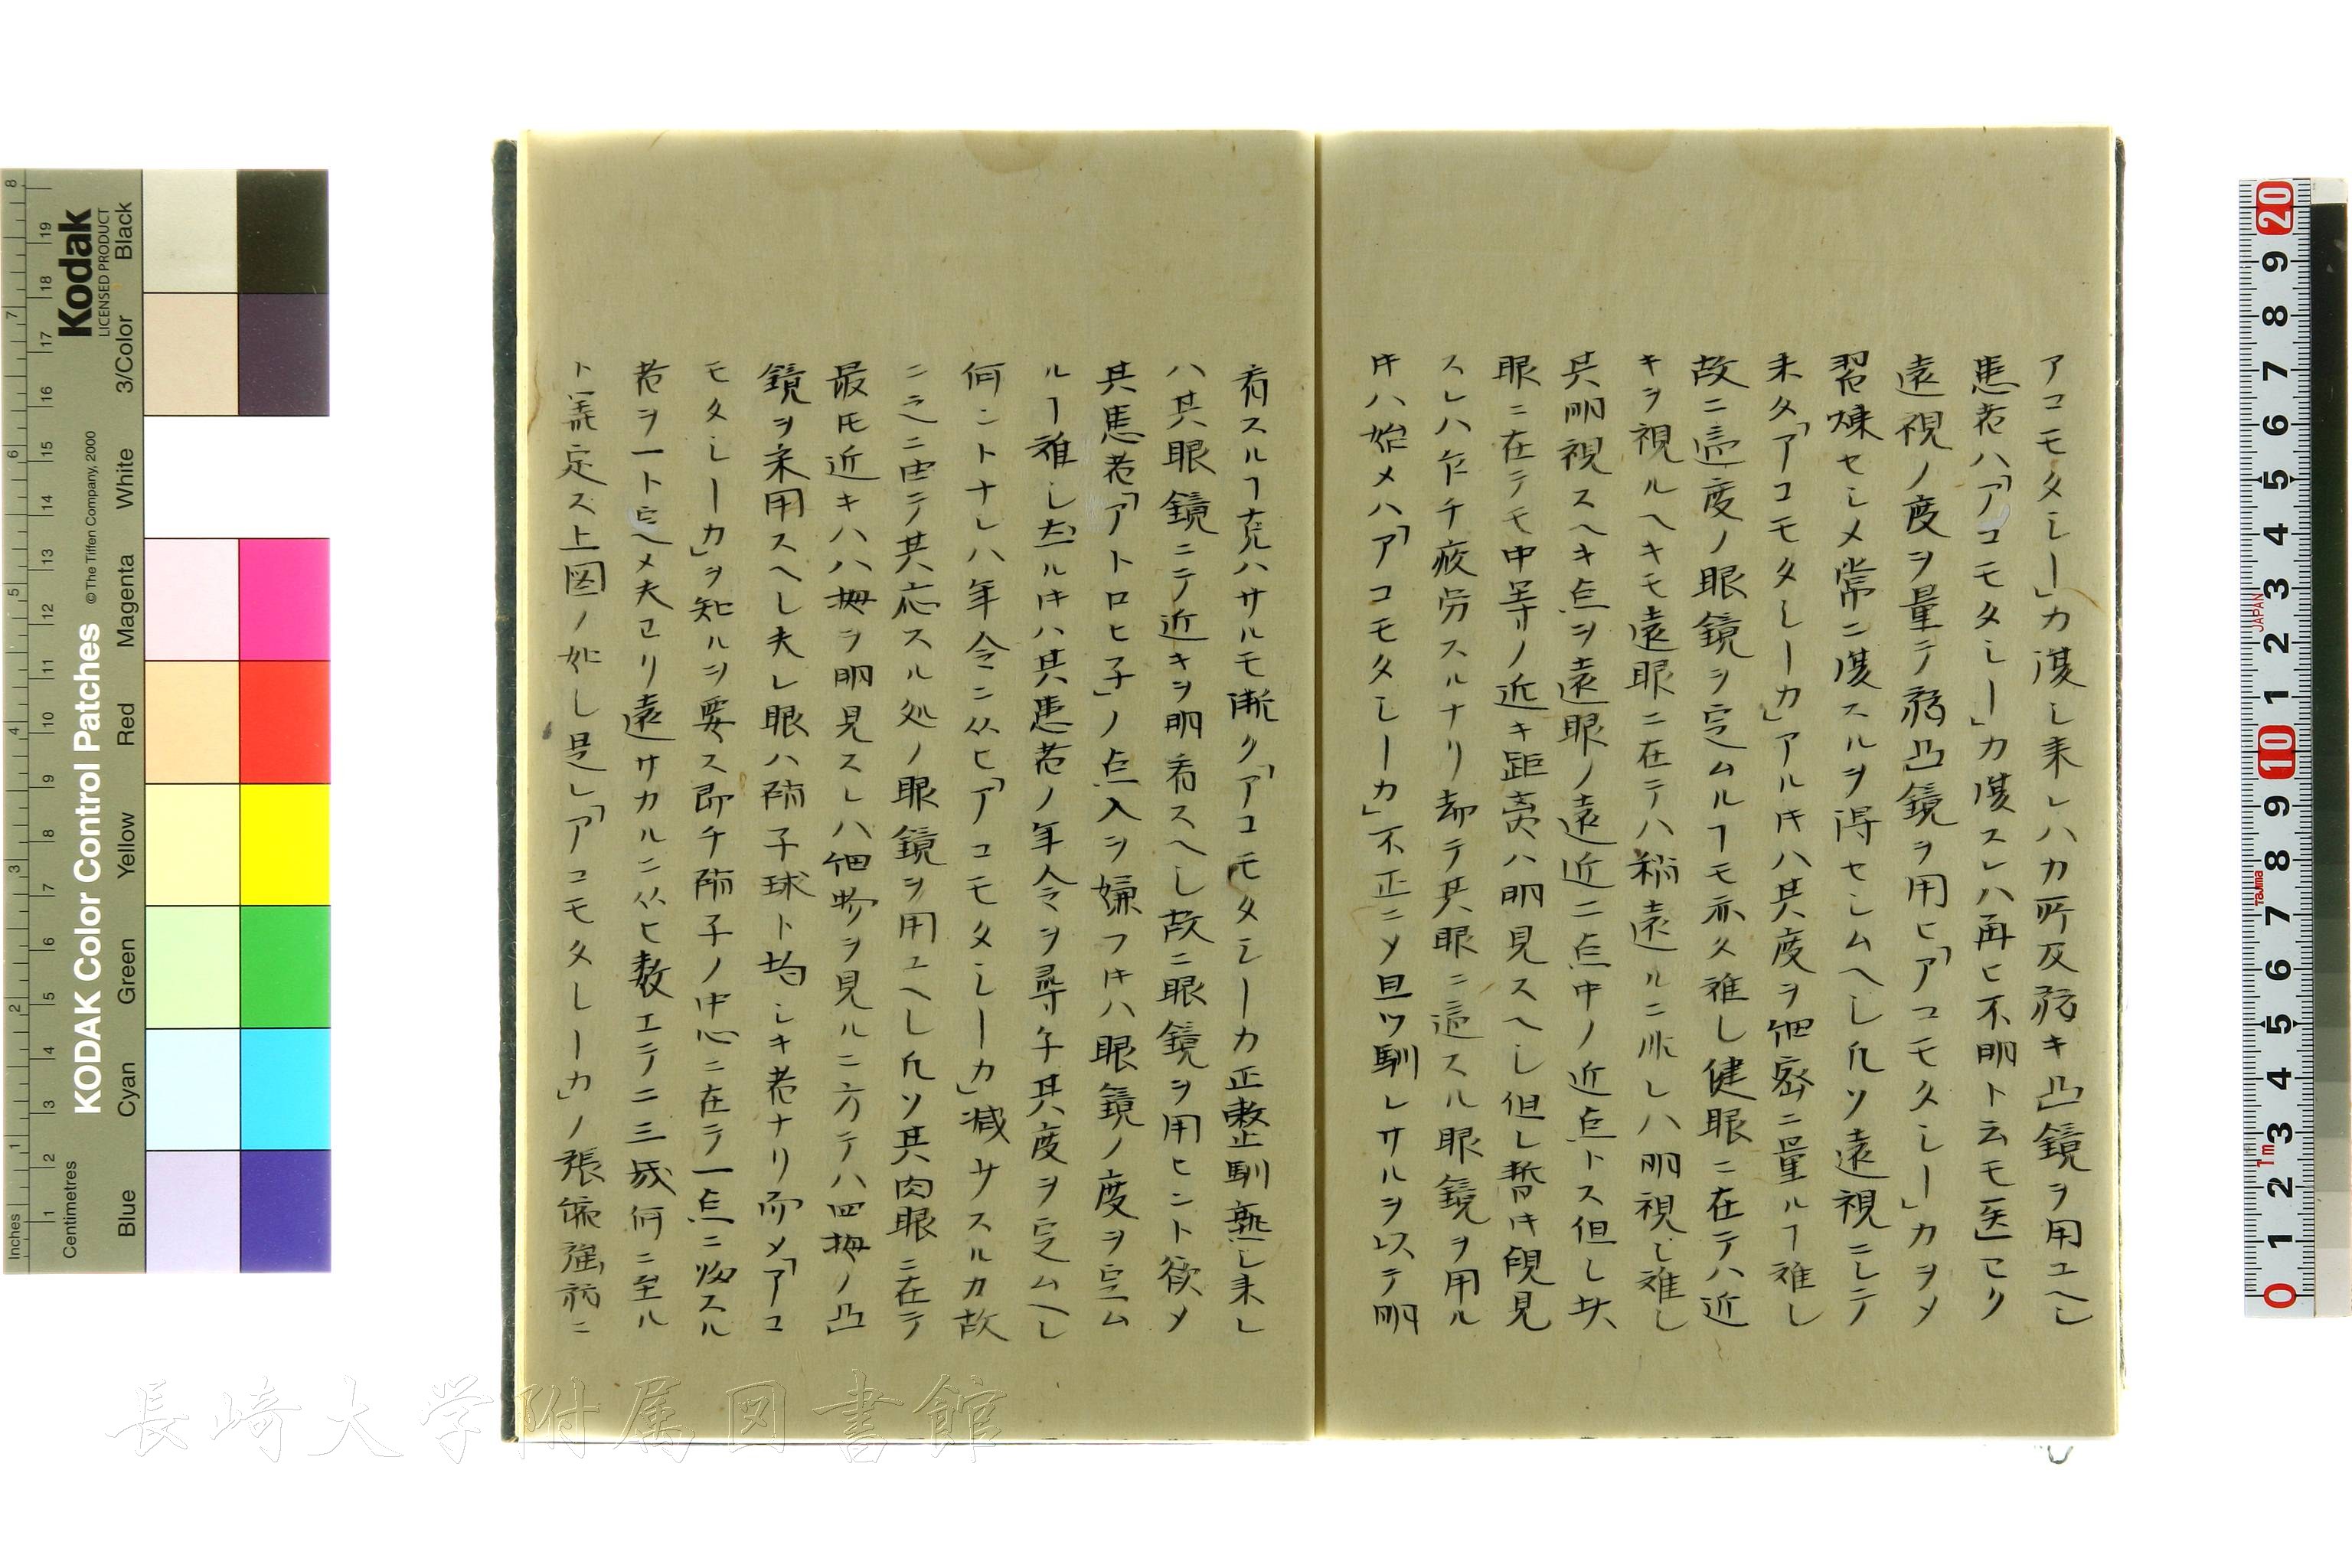 アコモタシー」カ復し来レハカ所及弱キ凸鏡ヲ用ユヘし
患者ハ「アコモタシー」カ復スレハ再ヒ不明ト云モ医ヨリ
遠視ノ度ヲ量テ弱凸鏡ヲ用ヒ「アコモタシー」カヲメ
習煉セシメ常ニ復スルヲ得セシムヘし凡ソ遠視ニシテ
未タ「アコモタシーカ」アルキハ其度ヲ細密ニ量ルヿ難し
故ニ適度ノ眼鏡ヲ定ムルヿモ亦タ難し健眼ニ在テハ近
キヲ視ルヘキモ遠眼ニ在テハ稍遠ルニ非レハ明視し難し
其明視スヘキ点ヲ遠眼ノ遠近二点中ノ近点トス但し此
眼ニ在テモ中等ノ近キ距离ハ明見スヘし但し暫キ覗見
スレハ乍チ疲労スルナリ却テ其眼ニ適スル眼鏡ヲ用ル
キハ始メハ「アコモタシーカ」不正ニメ且ツ馴レサルヲ以テ明
看スルヿ克ハサルモ漸ク「アコモタシーカ正整馴熟し来レ
ハ其眼鏡ニテ近キヲ明看スヘし故ニ眼鏡ヲ用ヒント欲メ
其患者「アトロヒ子」ノ点入ヲ嫌フキハ眼鏡ノ度ヲ定ム
ルヿ難し左ルキハ其患者ノ年令ヲ尋子其度ヲ定ムヘし
何ントナレハ年令ニ从ヒ「アコモタシーカ」減サスルカ故
ニ之ニ由テ其応スル処ノ眼鏡ヲ用ユヘし凡ソ其肉眼ニ在テ
最モ近キハ八拇ヲ明見スレハ細物ヲ見ルニ方テハ四拇ノ凸
鏡ヲ采用スヘし夫レ眼ハ硝子球ト均シキ者ナリ而メ「アコ
モタシーカ」ヲ知ルヲ要ス即チ硝子ノ中心ニ在テ一点ニ㷔スル
者ヲ一ト定メ夫ヨリ遠サカルニ从ヒ数エテ二三或何ニ至ル
ト算定ス上図ノ如し是レ「アコモタシーカ」ノ張縮強弱ニ
長崎大学附属図書館
KODAK Color Control Patches
© The Tiffen Company, 2000
Kodak
LICENSED PRODUCT
Inches
Centimetres
Blue
Cyan
Green
Yellow
Red
Magenta
White
3/Color
Black
JAPAN
Tajima
1m